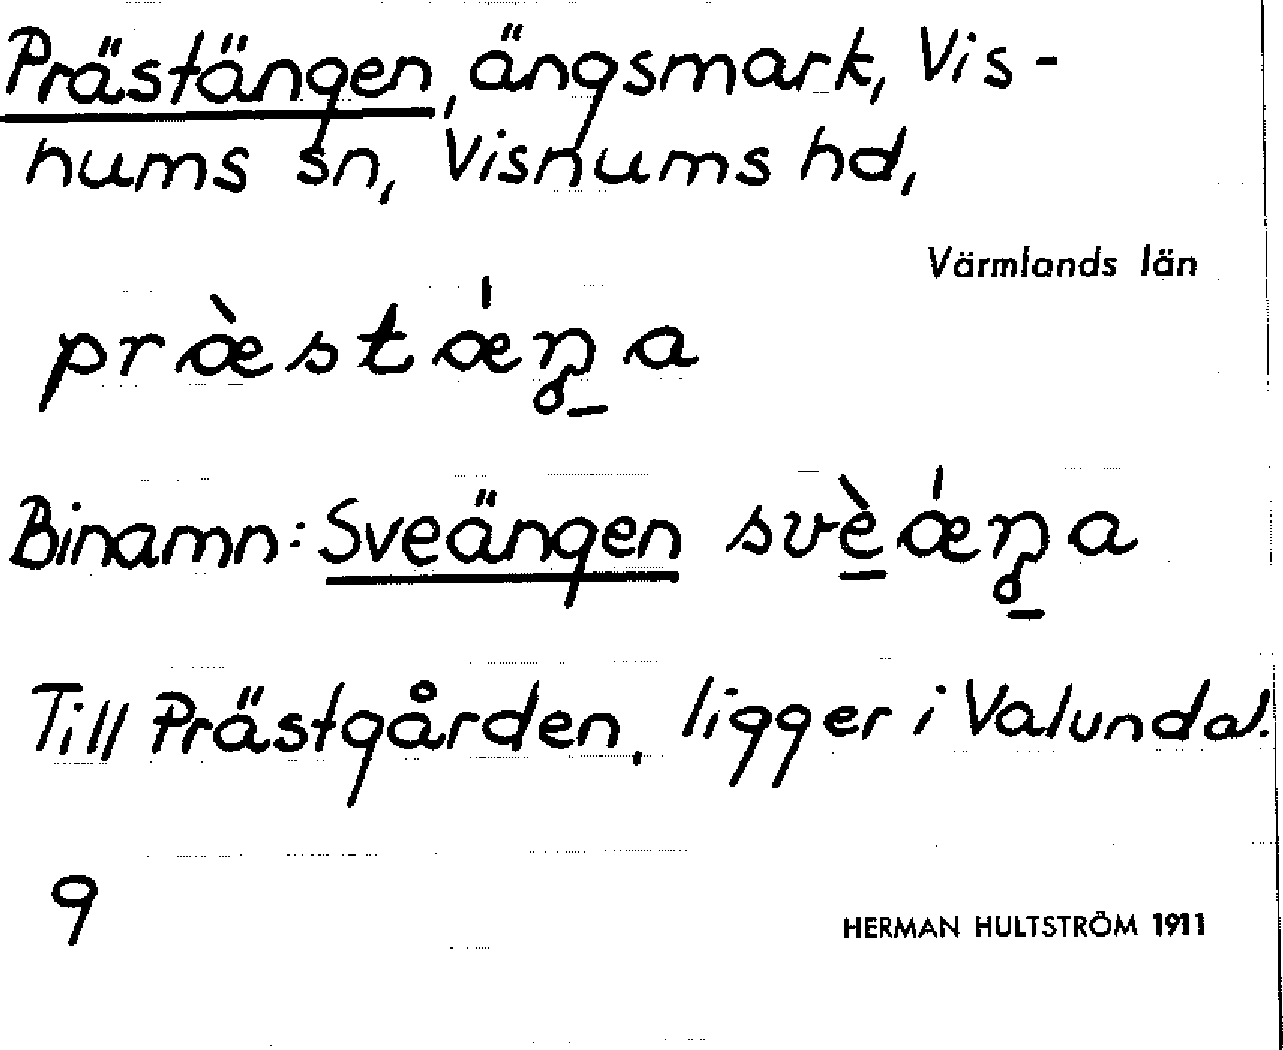 Prästängen, ängsmark, Vis-
nums sn, Visnums hd,
Värmlands län
præ̀stǽŋ̠a
Binamn: Sveängen svè̠ǽŋ̠a
Till Prästgården, ligger i Valundal.
9
HERMAN HULTSTRÖM 1911